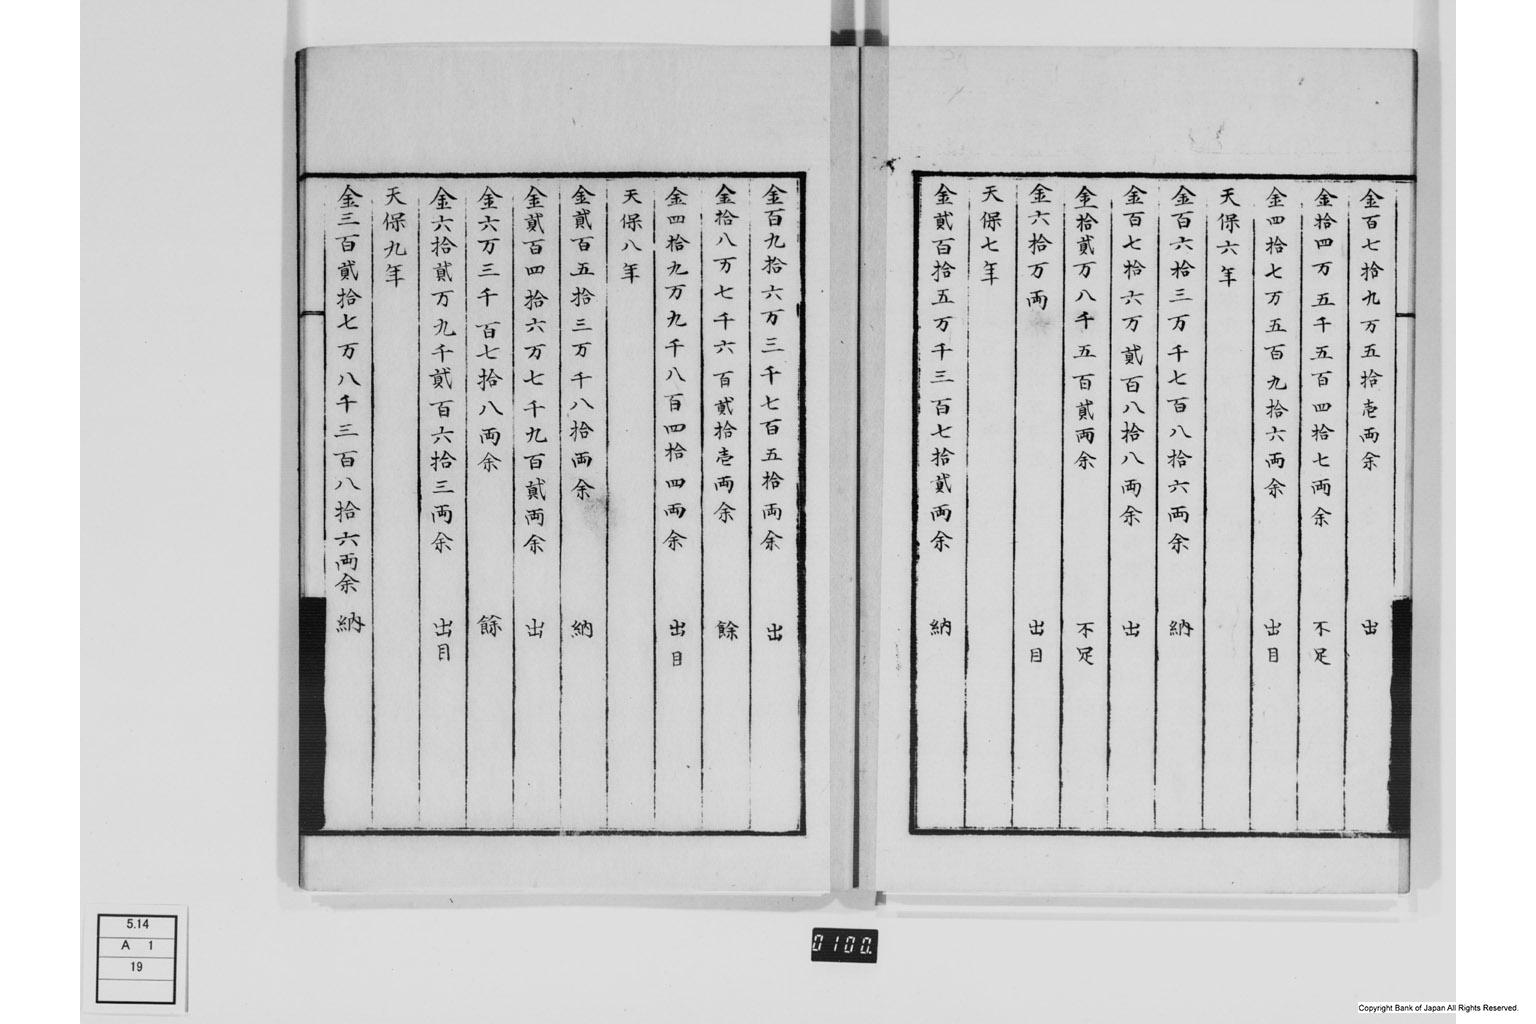 金百七拾九万五拾壱両余　出
金拾四万五千五百四拾七両余　不足
金四拾七万五百九拾六両余　出目
天保六年
金百六拾三万千七百八拾六両余　納
金百七拾六万貳百八拾八両余　出
金拾貳万八千五百貳両余　不足
金六拾万両　出目
天保七年
金貳百拾五万千三百七拾貳両余　納
金百九拾六万三千七百五拾両余　出
金拾八万七千六百貳拾壱両余　餘
金四拾九万九千八百四拾四両余　出目
天保八年
金貳百五拾三万千八拾両余　納
金貳百四拾六万七千九百貳両余　出
金六万三千百七拾八両余　餘
金六拾貳万九千貳百六拾三両余　出目
天保九年
金三百貳拾七万八千三百八拾六両余　納
5.14
A 1
19
0100.
Copyright Bank of Japan All Rights Reserved.